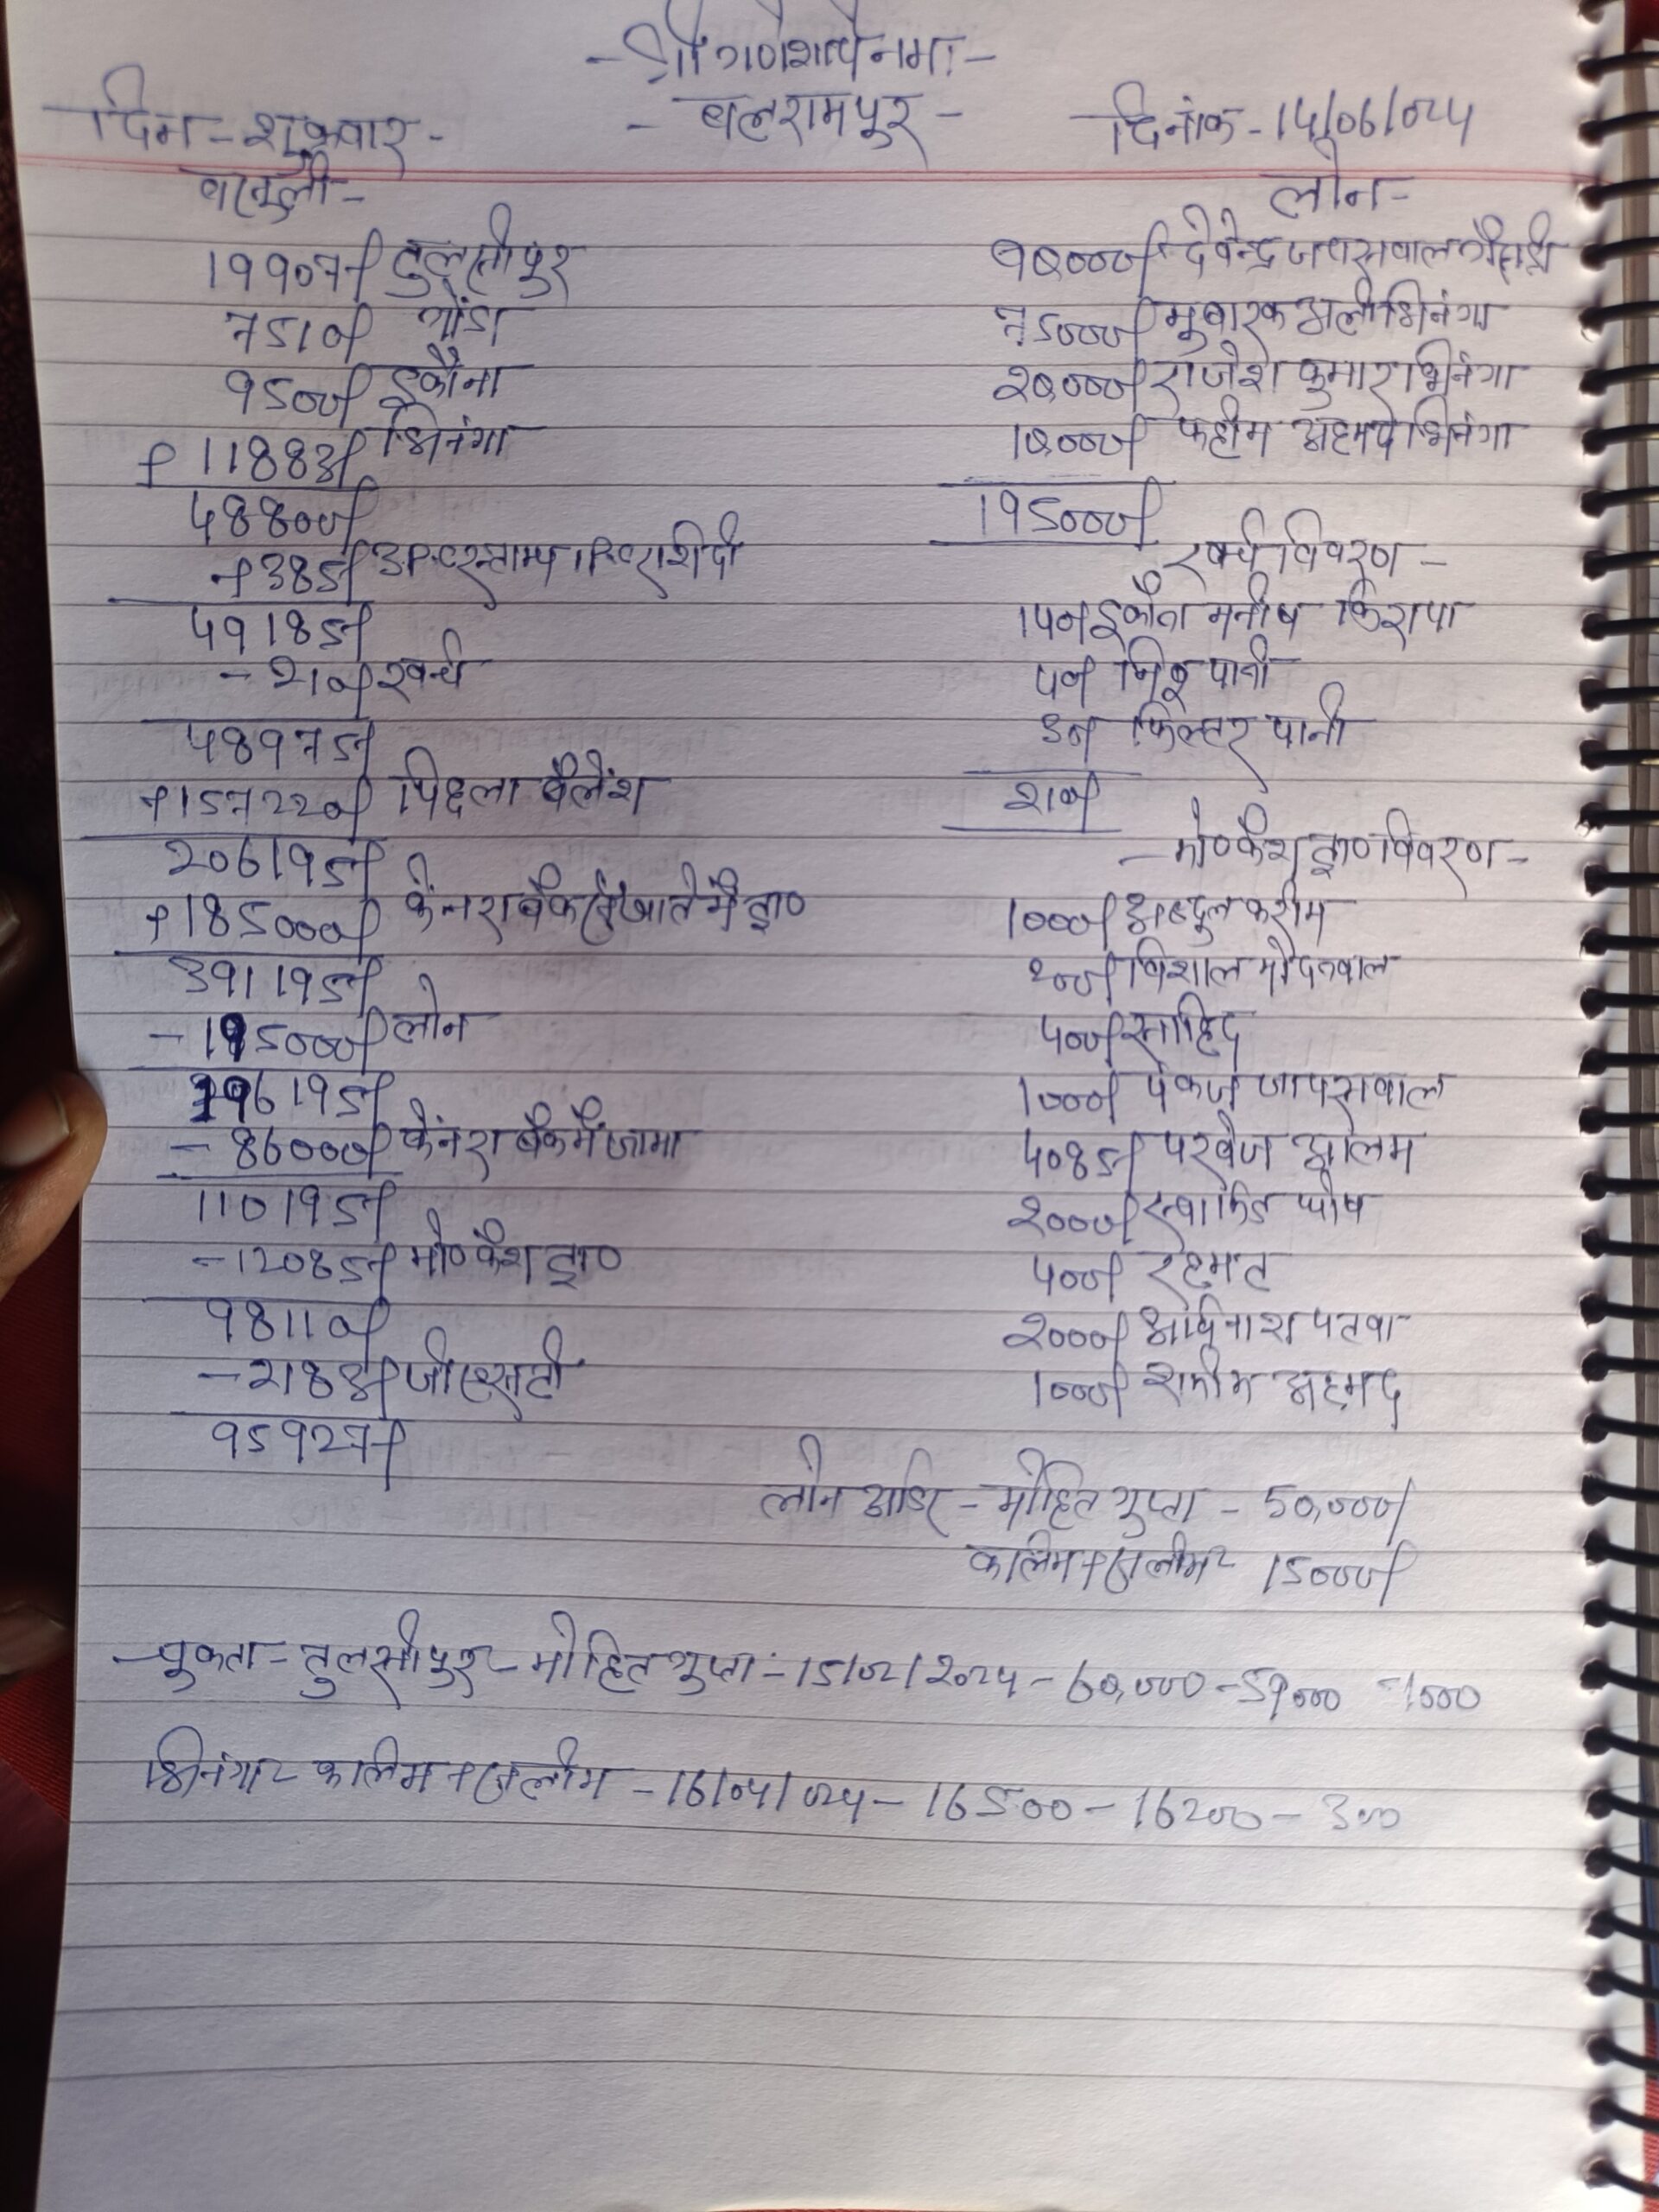 -श्री गणेशाये नमः-
दिन - शुक्रवार -
- बलरामपुर -
दिनांक - 14/06/024
वासुली -
19907/ तुलसीपुर
7510/ गोंडा
9500/ इकौना
+ 11883/ भिनंगा
48800/
+ 385/ स्टाम्प
49185/
- 210/ खर्च
48975/
+ 157220/ पिछला बैलेंश
206195/
+ 185000/ केनरा बैंक खाते मे ड्रा०
391195/
- 195000/ लोन
196195/
- 86000/ केंनरा बैंक मे जामा
110195/
- 12085/ मो० कैश ड्रा०
98110/
- 2183/ जीएसटी
95927/
लोन -
90,000/ देवेन्द्र जयसवाल
75000/ मुबारक अली भिनंगा
20,000/ राजेश कुमार भिनंगा
10,000/ फहीम अहमद भिनंगा
195000/
खर्च विवरण -
140/ इकौना मनीष किराया
40/ पानी
30/ फिल्टर पानी
210/
- मो० कैश ड्रा० विवरण -
1000/ अब्दुल करीम
200/ विशाल मोदनवाल
400/ साहिद
1000/ पंकज जायसवाल
4085/ परवेज आलम
2000/ घोष
400/ रहमत
2000/ अविनाश पटवा
1000/ शमीम अहमद
लोन आडर - मोहित गुप्ता - 50,000/
कलिम + सलीम - 15000/
- चुकता - तुलसीपुर - मोहित गुप्ता - 15/02/2024 - 60,000 - 59000 - 1000
भिनंगा - कलिम + सलीम - 16/04/024 - 16500 - 16200 - 300